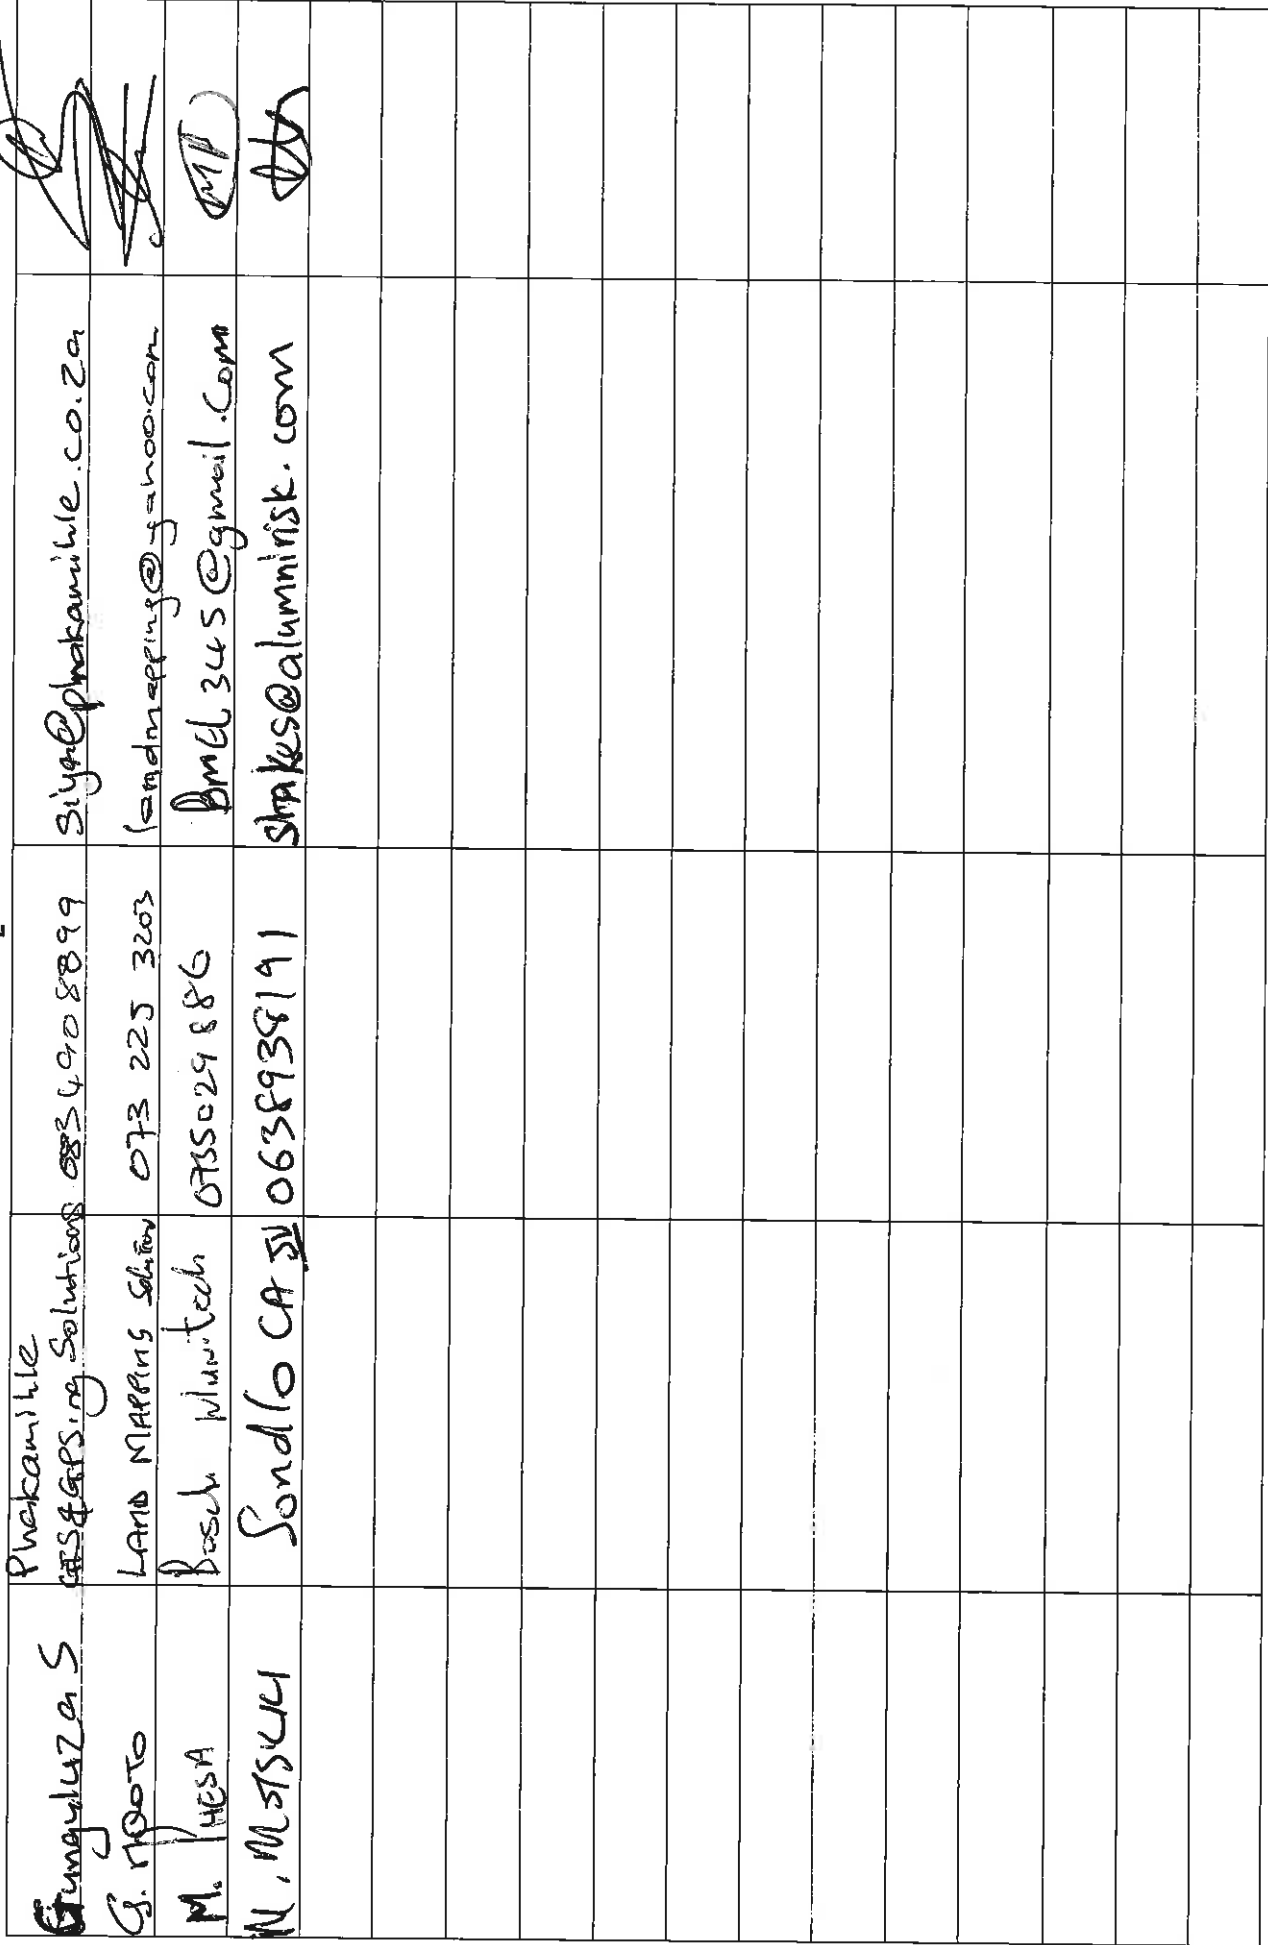 Phakamihle
Gungluza S GIS & GPSing Solutions 0834908899 siya@phakamihle.co.za
G. MQOTO LAND MAPPING Solution 073 225 3203 landmapping@yahoo.com
M. PHESA Bosch Munitech 0735029886 BMEL345@gmail.com
N. Sondlo CA JV 0638938191 shakes@alumnirisk.com